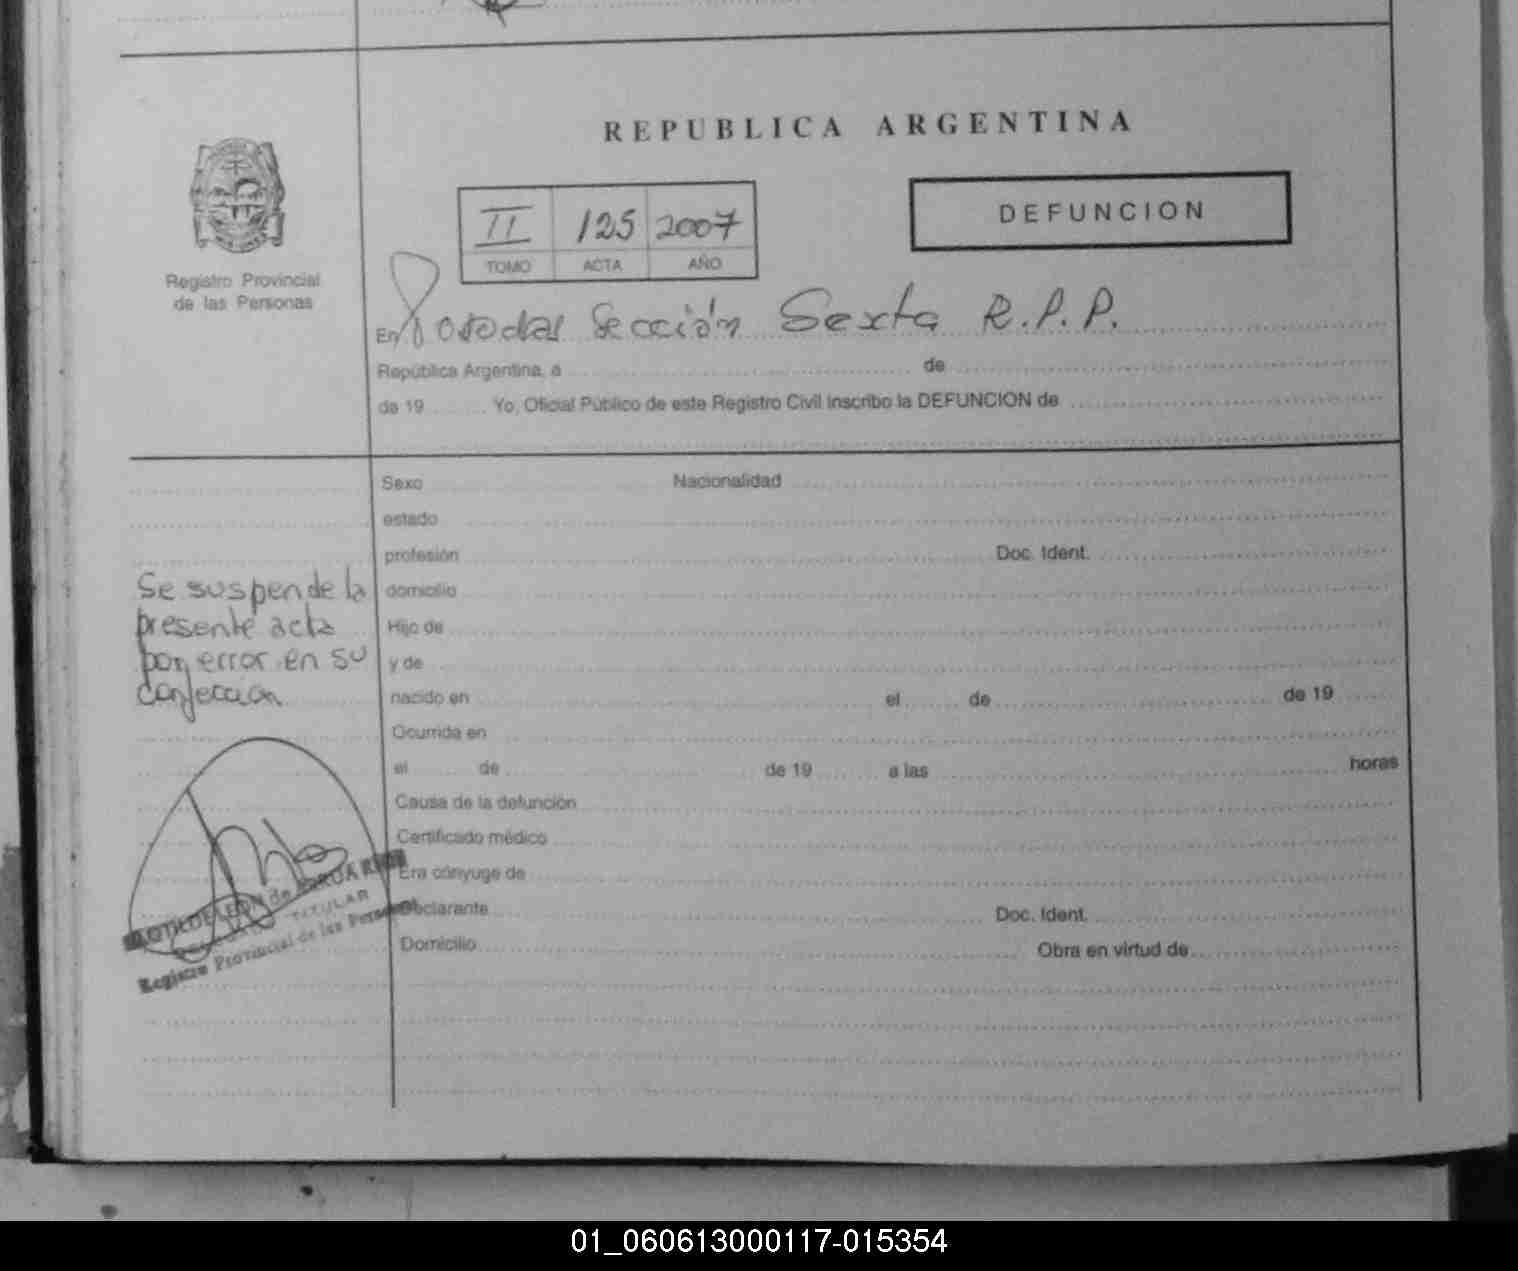 REPUBLICA ARGENTINA
DEFUNCION
II 125 2007
TOMO ACTA AÑO
Registro Provincial
de las Personas
En Posadas Sección Sexta R.P.P.
República Argentina, a de
de 19 Yo, Oficial Público de este Registro Civil inscribo la DEFUNCION de
Sexo Nacionalidad
estado
profesión Doc. Ident.
domicilio
Hijo de
y de
nacido en el de de 19
Ocurrida en
el de de 19 a las horas
Causa de la defunción
Certificado médico
Era cónyuge de
Declarante Doc. Ident.
Domicilio Obra en virtud de
Se suspende la
presente acta
por error en su
confección
TITULAR
Registro Provincial de las Personas
01_060613000117-015354